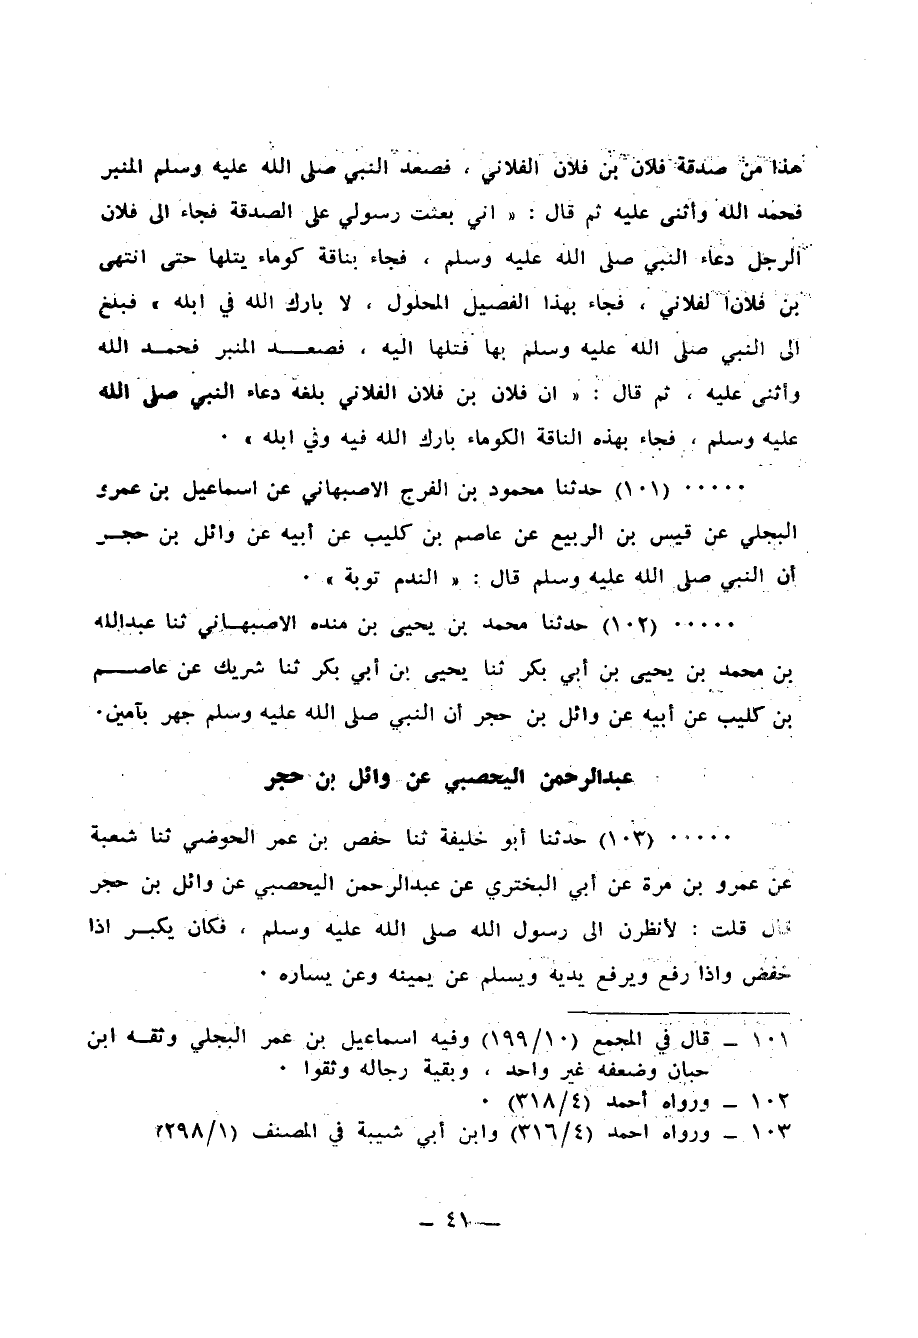 هذا من صدقة فلان بن فلان الفلاني ، فصعد النبي صلى الله عليه وسلم المنبر
فحمد الله وأثنى عليه ثم قال : « اني بعثت رسولي على الصدقة فجاء الى فلان
الرجل دعاء النبي صلى الله عليه وسلم ، فجاء بناقة كوماء يتلها حتى انتهى
بن فلان الفلاني ، فجاء بهذا الفصيل المحلول ، لا بارك الله في ابله » فبلغ
الى النبي صلى الله عليه وسلم بها فتلها اليه ، فصعد المنبر فحمد الله
وأثنى عليه ، ثم قال : « ان فلان بن فلان الفلاني بلغه دعاء النبي صلى الله
عليه وسلم ، فجاء بهذه الناقة الكوماء بارك الله فيه وفي ابله » ٠
٠٠٠٠٠ (١٠١) حدثنا محمود بن الفرج الاصبهاني عن اسماعيل بن عمرو
البجلي عن قيس بن الربيع عن عاصم بن كليب عن أبيه عن وائل بن حجر
أن النبي صلى الله عليه وسلم قال : « الندم توبة » ٠
٠٠٠٠٠ (١٠٢) حدثنا محمد بن يحيى بن منده الاصبهاني ثنا عبدالله
بن محمد بن يحيى بن أبي بكر ثنا يحيى بن أبي بكر ثنا شريك عن عاصم
بن كليب عن أبيه عن وائل بن حجر أن النبي صلى الله عليه وسلم جهر بآمين٠
عبدالرحمن اليحصبي عن وائل بن حجر
٠٠٠٠٠ (١٠٣) حدثنا أبو خليفة ثنا حفص بن عمر الحوضي ثنا شعبة
عن عمرو بن مرة عن أبي البختري عن عبدالرحمن اليحصبي عن وائل بن حجر
قال قلت : لأنظرن الى رسول الله صلى الله عليه وسلم ، فكان يكبر اذا
خفض واذا رفع ويرفع يدية ويسلم عن يمينه وعن يساره ٠
١٠١ ــ قال في المجمع (١٩٩/١٠) وفيه اسماعيل بن عمر البجلي وثقه ابن
حبان وضعفه غير واحد ، وبقية رجاله وثقوا ٠
١٠٢ ــ ورواه أحمد (٣١٨/٤) ٠
١٠٣ ــ ورواه احمد (٣١٦/٤) وابن أبي شيبة في المصنف (٢٩٨/١)
ــ ٤١ ــ